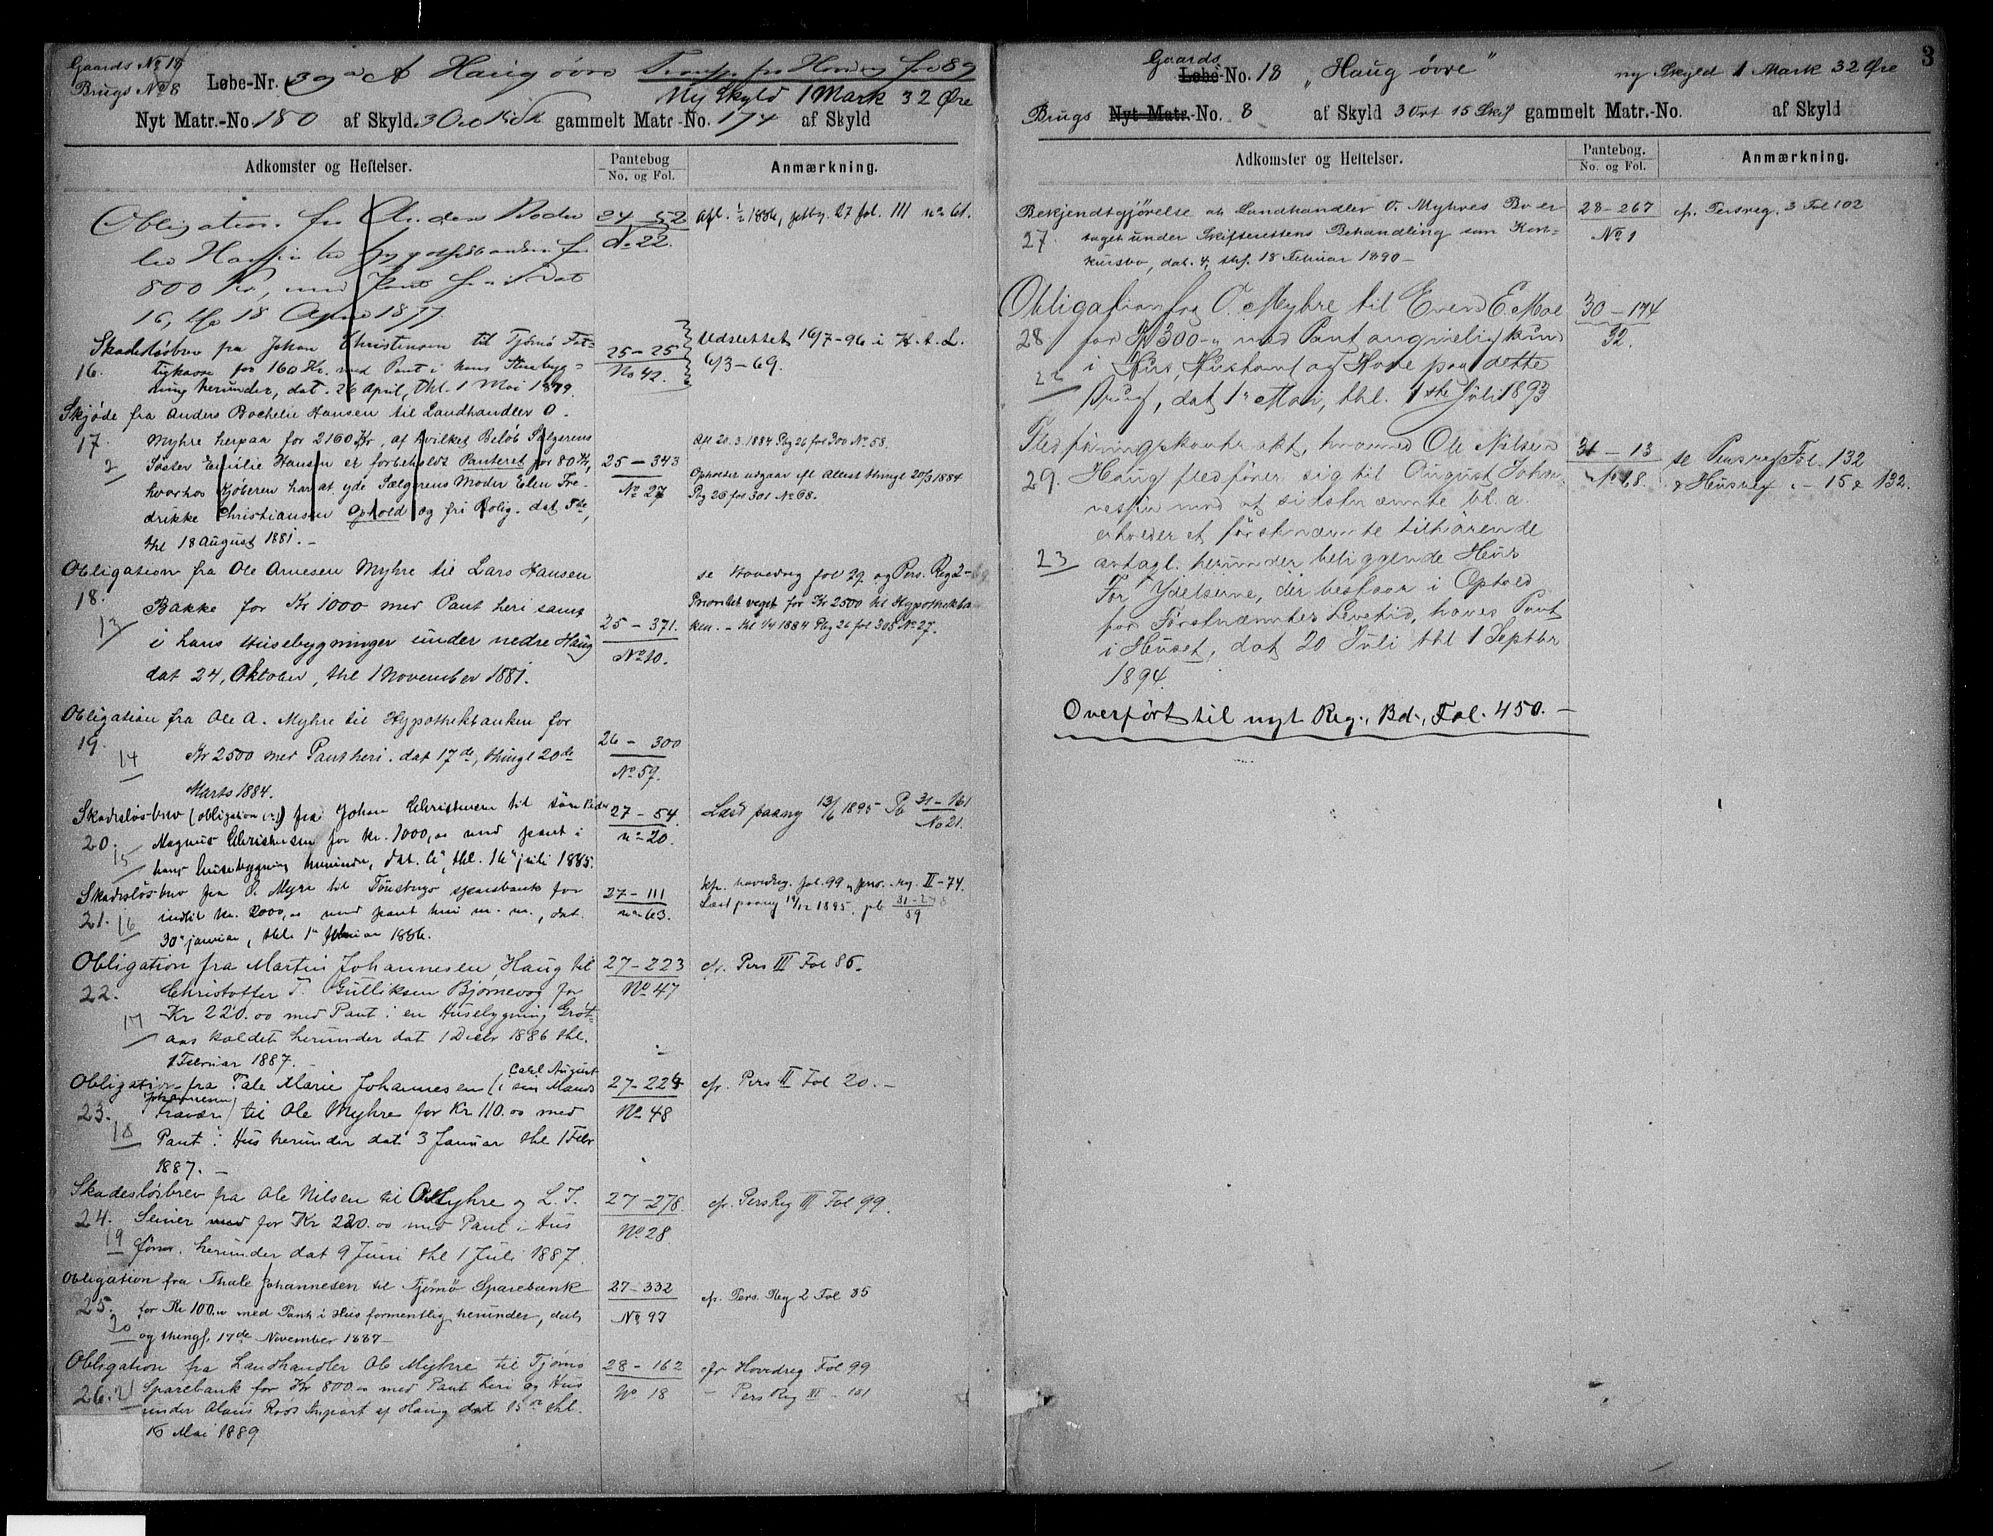 Gaards No 18
Brugs No 8
Løbe-Nr. 39 a A Haug øvre Transp. fra Hovedreg fol 89
Ny Skyld 1 Mark 32 Øre
Nyt Matr.-No. 180 af Skyld 3 Ort gammelt Matr.-No. 174 af Skyld
Adkomster og Heftelser.
Pantebog
No. og Fol.
Anmærkning.
Obligation fra
24 – 52 Afl. 1/2 1886, pstbg. 27 fol. 111 no 61.
No 22.
til Hypothekbanken for
800 Kr, med Pant heri dat
16, thl 18 April 1877.
Skadesløsbrev fra Johan Christensen til Tjømø Fat-
25 – 25 Udslettet 16/7-96 i H. t. L.
16. tigkasse for 160 Kr. med Pant i hans Stuebyg-
No 42. 6/3 – 69.
ning herunder, dat. 26 April, thl. 1 Mai 1879.
Skjøde fra Anders Bochelie Hansen til Landhandler O.
17. Myhre herpaa for 2160 Kr, af hvilket Beløb Sælgerens
Afl 20.3.1884 Pbg 26 fol 300 No 58.
2 Søster Emilie Hansen er forbeholdt Panteret for 80 Kr,
25 – 343
No 27
Opholdet udgaar efl Attest thingl 20/3 1884
Pbg 26 fol 301 No 68.
hvorhos Kjøberen har at yde Sælgerens Moder Elen Fre-
drikke Christiansen Ophold og fri Bolig. dat Fde,
thl 18 August 1881. –
Obligation fra Ole Arnesen Myhre til Lars Hansen
se Hovedreg fol 99 og Pers. Reg 2 –
18. Bakke for Kr 1000 med Pant heri samt
Prioritet veget for Kr 2500 til Hypothekban
13 i hans Husebygninger under nedre Haug
25 – 371.
No 10.
ken. – thl 1/4 1884 Pbg 26 fol 305 No 27.
dat 24, Oktober, thl 1 November 1881.
Obligation fra Ole A. Myhre til Hypothekbanken for
19. 14 Kr 2500 med Pant heri. dat 17de, thingl 20de
26 – 300
No 59.
Marts 1884.
Skadesløsbrev (obligation) fra Johan Christensen til
27 – 54. Læst paany 13/6 1895 Pb 31 – 161
No 21.
20. 15 Magnus Christensen for Kr. 1000,00 med pant i
no 20.
hans husebygning herunder, dat. 6', thl. 16' juli 1885.
Skadesløsbrev fra O. Myre til Tønsbergs sparebank for
27 – 111 kfr. hovedreg. fol. 99 og pers. reg. II – 74.
21. 16 indtil Kr. 2000,00 med pant heri m. m., dat.
no 63. Læst paany 19/12 1895. pb 31 – 278
59
30' januar, thl. 1' februar 1886.
Obligation fra Martin Johannesen, Haug til
27 – 223 cfr. Pers III Fol 86.
22. Christoffer T. Gulliksen Bjørnevog for
No 47
17 Kr 220.00 med Pant i en Husebygning Grøt-
aas kaldet herunder dat 1 Decbr 1886 thl.
1 Februar 1887. –
Obligation fra Tale Marie Johannesen (i sin Mands
Carl August
27 – 224 cfr. Pers II Fol 20. –
23. Johannesen Fravær) til Ole Myhre for Kr 110.00 med
No 48
18 Pant i Hus herunder dat 3 Januar thl 1 Febr
1887. –
Skadesløsbrev fra Ole Nilsen til O. Myhre og L. T.
27 – 278. cfr. Pers Reg III Fol 99.
24. Seiner for Kr 220.00 med Pant i Hus
No 28
19 herunder dat 9 Juni thl 1 Juli 1887.
Obligation fra Thale Johannesen til Tjømø Sparebank
27 – 332 cfr. Pers. Reg 2 Fol 35
25. for Kr 100.00 med Pant i Hus formentlig herunder, dat
No 97
20 og thingl. 17de November 1887 –
Obligation fra Landhandler Ole Myhre til Tjømø
28 – 162 cfr Hovedreg Fol 99
26. 21 Sparebank for Kr 800.00 med Pant heri og Hus
No 18 – Pers Reg III – 101
under Roos Anpart af Haug dat 15de thl.
16 Mai 1889
3
Gaards
Løbe-No. 18 „Haug øvre” ny Skyld 1 Mark 32 Øre
Brugs Nyt Matr.-No. 8 af Skyld 3 Ort 15 Skil gammelt Matr.-No. af Skyld
Adkomster og Heftelser.
Pantebog.
No. og Fol.
Anmærkning.
Bekjendtgjørelse at Landhandler O. Myhres Bo er
28 – 267 cfr. Persreg. 3 Fol 102
27. taget under Skifterettens Behandling som Kon-
No 1
kursbo, dat. 4, thl. 18 Februar 1890 –
Obligation fra O. Myhre til Even E. Moe
30 – 174
28. for Kr 300 – med Pant angivelig kun
32.
i Hus, Hustomt og Have paa dette
22 Brug, dat 1' Mai, thl. 1ste Juli 1893
Fledføringskontrakt, hvorved Ole Nilsen
31 – 13 se Persreg Fol. 132
29. Haug fledfører sig til August Johan-
No 68. & Husreg. „ – 15 & 132.
nesen mod at sidstnævnte bl. a.
erholder et førstnævnte tilhørende
23 antagl. herunder beliggende Hus
For Ydelserne, der bestaar i Ophold
for Førstnævntes Levetid, haves Pant
i Huset, dat 20 Juli thl 1 Septbr
1894.
Overført til nyt Reg., Bd., Fol. 450. –